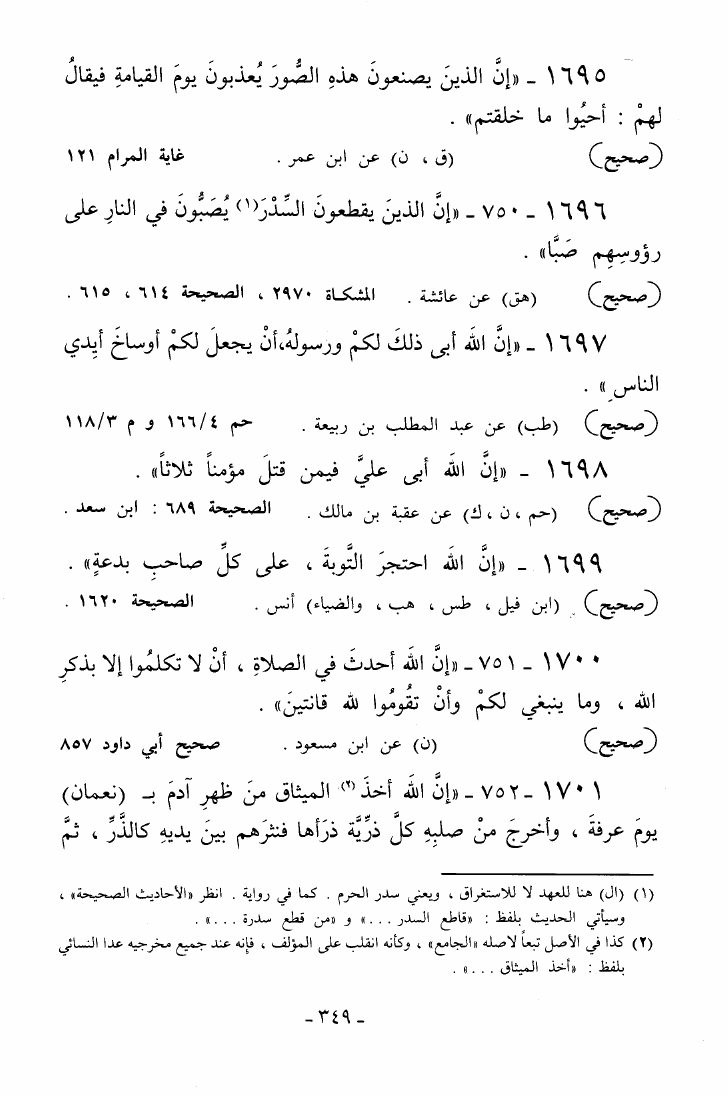 ١٦٩٥ ـ «إنَّ الذينَ يصنعونَ هذهِ الصُّورَ يُعذبونَ يومَ القيامةِ فيقالُ
لهمْ : أحيُوا ما خلقتم» .
(صحيح) (ق ، ن) عن ابن عمر . غاية المرام ١٢١
١٦٩٦ ـ ٧٥٠ ـ «إنَّ الذينَ يقطعونَ السِّدْرَ(١) يُصَبُّونَ في النارِ على
رؤوسِهِم صَبًّا» .
(صحيح) (هق) عن عائشة . المشكاة ٢٩٧٠ ، الصحيحة ٦١٤ ، ٦١٥ .
١٦٩٧ ـ «إنَّ الله أبى ذلكَ لكمْ ورسولهُ،أنْ يجعلَ لكمْ أوساخَ أيدي
الناسِ» .
(صحيح) (طب) عن عبد المطلب بن ربيعة . حم ١٦٦/٤ و م ١١٨/٣
١٦٩٨ ـ «إنَّ الله أبى عليَّ فيمن قتلَ مؤمناً ثلاثاً» .
(صحيح) (حم ،ن ،ك) عن عقبة بن مالك . الصحيحة ٦٨٩ : ابن سعد .
١٦٩٩ ـ «إنَّ الله احتجرَ التَّوبةَ ، على كلِّ صاحبِ بدعةٍ» .
(صحيح) . (ابن فيل ، طس ، هب ، والضياء) أنس . الصحيحة ١٦٢٠ .
١٧٠٠ ـ ٧٥١ ـ «إنَّ الله أحدثَ في الصلاةِ ، أنْ لا تكلمُوا إلا بذكرِ
الله ، وما ينبغي لكمْ وأنْ تقُومُوا لله قانتينَ» .
(صحيح) (ن) عن ابن مسعود . صحيح أبي داود ٨٥٧
١٧٠١ ـ ٧٥٢ ـ «إنَّ الله أخذَ(٢) الميثاق منَ ظهرِ آدمَ بـ (نعمان)
يومَ عرفةَ ، وأخرجَ منْ صلبِهِ كلَّ ذرِّيَّة ذرَأها فنثرَهم بينَ يديهِ كالذَّرِّ ، ثمَّ
(١) (ال) هنا للعهد لا للاستغراق ، ويعني سدر الحرم . كما في رواية . انظر «الأحاديث الصحيحة» ،
وسيأتي الحديث بلفظ : «قاطع السدر ...» و «من قطع سدرة ...» .
(٢) كذا في الأصل تبعاً لاصله «الجامع» ، وكأنه انقلب على المؤلف ، فإنه عند جميع مخرجيه عدا النسائي
بلفظ : «أخذ الميثاق ...» .
ـ ٣٤٩ ـ